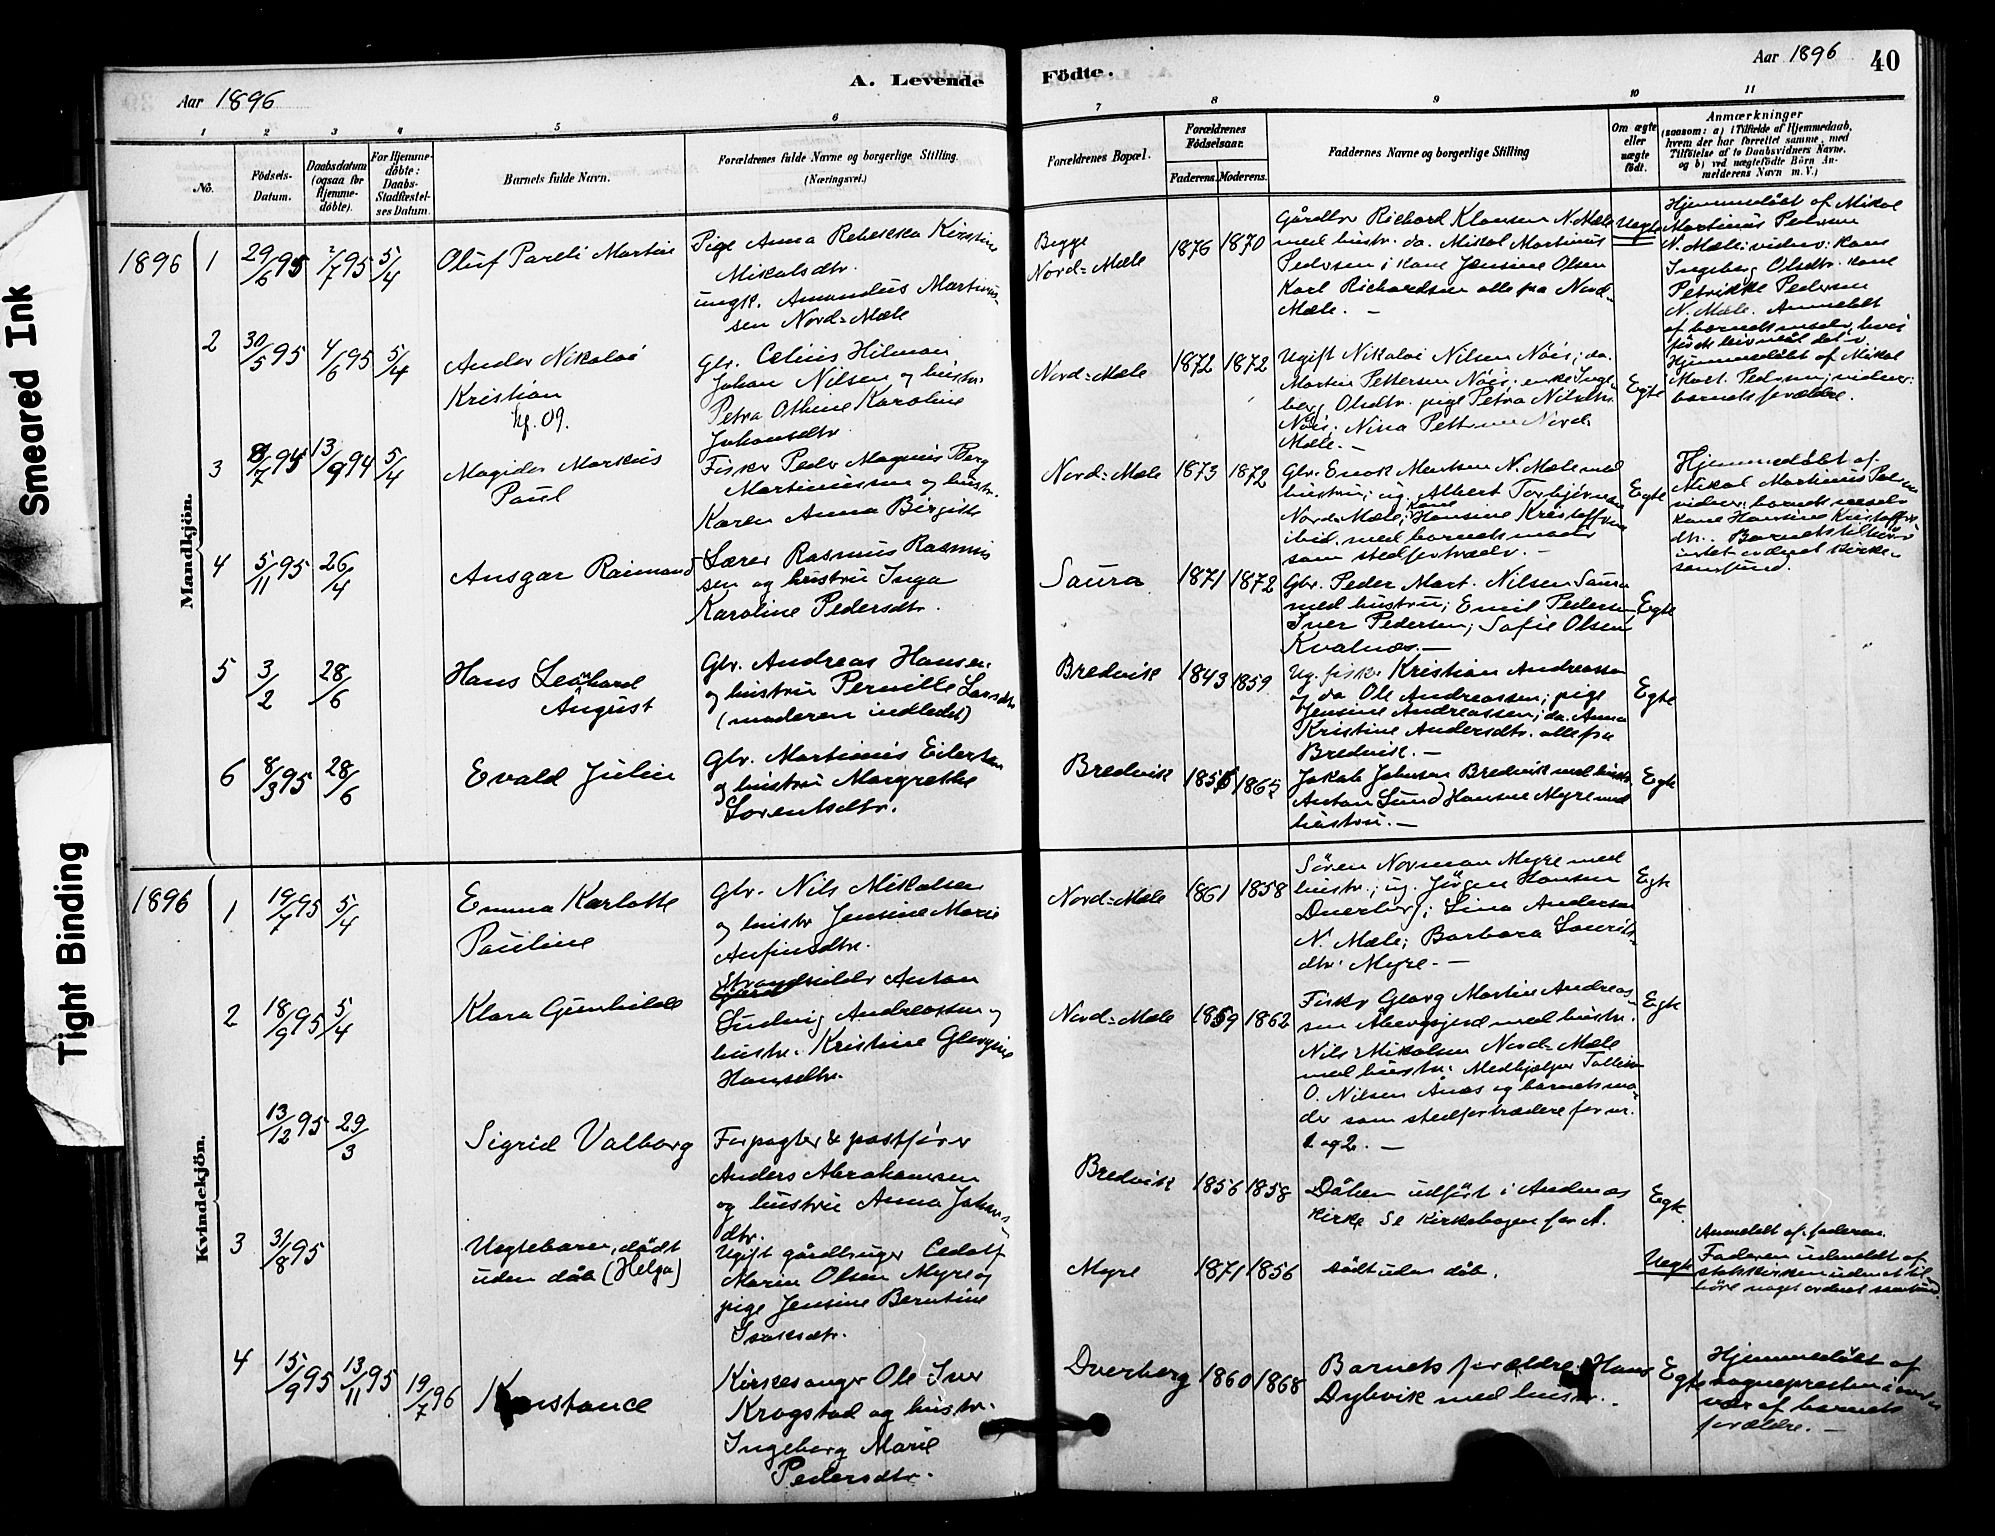 Smeared Ink
Tight Binding
Aar 1896
A. Levende
Födte.
Aar 1896
40
1 2 3 4 5 6 7 8 9 10 11
No.
Fødsels-
Datum.
Daabsdatum
(ogsaa for
Hjemme-
døbte).
For Hjemme-
døbte:
Daabs-
Stadfæstel-
ses Datum.
Barnets fulde Navn.
Forældrenes fulde Navne og borgerlige Stilling.
(Næringsvei.)
Forældrenes Bopæl.
Forældrenes
Fødselsaar.
Faderens. Moderens.
Faddernes Navne og borgerlige Stilling
Om ægte
eller
uægte
født.
Anmærkninger
(saasom: a) i Tilfælde af Hjemmedaab,
hvem der har forrettet samme, med
Tilføielse af to Daabsvidners Navne,
og b) ved uægtefødte Börn An-
melderens Navn m. V.)
Mandkjön.
1896 1 29/6 95 2/7 95 5/4
Oluf Pareli Martin
Pige Anna Rebekka Kirstine
Mikalsdtr.
ungk. Amandus Martinus-
sen Nord-Mæle
Begge
Nord-Mæle
1876 1870
Gårdbr Richard Klausen N. Mæle
med hustr. do. Mikal Martinus
Pedersen; kone Jensine Olsen
Karl Richardsen alle fra Nord-
Mæle. —
Uegte
Hjemmedøbt af Mikal
Martinus Pedersen
N. Mæle; vidner: kone
Ingeberg Olsdtr. kone
Petrikke Pedersen
N. Mæle. Anmeldt
2 30/5 95 4/6 95 5/4
Andor Nikolai
Kristian
Gbr.
Johan Nilsen og hustr.
Petra Othine Karoline
Johansdtr.
Nord-Mæle
1872 1872
Ugift Nikolai Nilsen Nöis; do.
Martin Pettersen Nöis; enke Inge-
berg Olsdtr. pige Petra Nilsdtr.
Nöis; Nina Petters Nord-
Mæle. —
Egte
Hjemmedøbt af Mikal
Mart. Pedersen; vidner:
barnets forældre.
3 8/7 94 13/9 94 5/4
Magider Markus
Paul
Fisker Peder Magnus Berg
Martinussen og hustr.
Karen Anna Birgitte
Nord-Mæle
1873 1872
Gbr. Enok N. Mæle med
hustru; ug. Albert Torbjörnsen
Nord-Mæle; kone Hansine Kristoffersen
ibid. med barnets moder
som stedfortræder. —
Egte
Hjemmedøbt af
Mikal Martinus Peder
vidner: barnets
kone Hansine Kristoffers
dtr. Barnets
intet ordnet kirke-
samfund.
4 5/11 95 26/4
Ansgar Raimand
Lærer Rasmus Rasmus
sen og hustru Inga
Karoline Pedersdtr.
Saura
1871 1872
Gbr. Peder Mart. Nilsen Saura
med hustru; Emil Pedersen,
Iver Pedersen; Sofie Olsen
Kvalnæs. —
Egte
5 3/2 28/6
Hans Leonhard
August
Gbr. Andreas Hansen
og hustru Pernille Larsdtr
(moderen indledet)
Bredvik
1843 1859
Ug. fisker Kristian Andreassen
og do Ole Andreassen; pige
Jensine Andreassen; do. Anna
Kristine Andersdtr. alle fra
Bredvik. —
Egte
6 8/3 95 28/6
Evald Julin
Gbr. Martinus Eilertsen
og hustru Margrethe
Lorentsdtr.
Bredvik
1865
Jakob Johnsen Bredvik med hustr.
Anton Lund Hansine Myre med
hustru. —
Egte
Kvindekjön.
1896 1 19/7 95 5/4
Emma Karlotte
Pauline
Gbr. Nils Mikalsen
og hustr Jensine Marie
Anfinsdtr.
Nord-Mæle
1861 1858
Sören Norman Myre med
hustr.; ug. Jörgen Hansen
Dverberg; Lina Andersen
N. Mæle; Barbara Laurits-
dtr. Myre. —
Egte
2 18/9 95 5/4
Klara Gunhilde
Strandsidder Anton
Ludvig Andreassen og
hustr. Kristine Glorgine
Hansdtr.
Nord-Mæle
1859 1862
Fisker Georg Martin Andreas-
sen Åbergsjord med hustr.
Nils Mikalsen Nord-Mæle
med hustr. Medhjælper Tollef
O. Nilsen Ånæs og barnets mo-
der som stedfortrædere for nr.
1 og 2. —
Egte
13/12 95 29/3
Sigrid Valborg
Forpagter & postfører
Anders Abrahamsen
og hustru Anna Johans
dtr.
Bredvik
1856 1858
Dåben udført i Andenes
kirke Se kirkebogen for A.
Egte.
3 31/8 95
Uegtebaren, dødt
uden dåb (Helga)
Ugift gårdbruger Cedolf
Maren Olsen Myre og
pige Jensine Berntine
Isaksdtr.
Myre
1871 1856
dødt uden dåb.
Uegte
Anmeldt af faderen.
Faderen udmeldt af
statskirken uden at til-
høre noget ordnet samfund.
4 15/9 95 13/11 95 19/7 96
Konstance
Kirkesanger Ole Iver
Krogstad og hustr.
Ingeborg Marie
Pedersdtr.
Dverberg
1860 1868
Barnets forældre, Hans
Dybvik med hustr.
Egte
Hjemmedøbt af
sognepresten i
vær af barnets
forældre. —